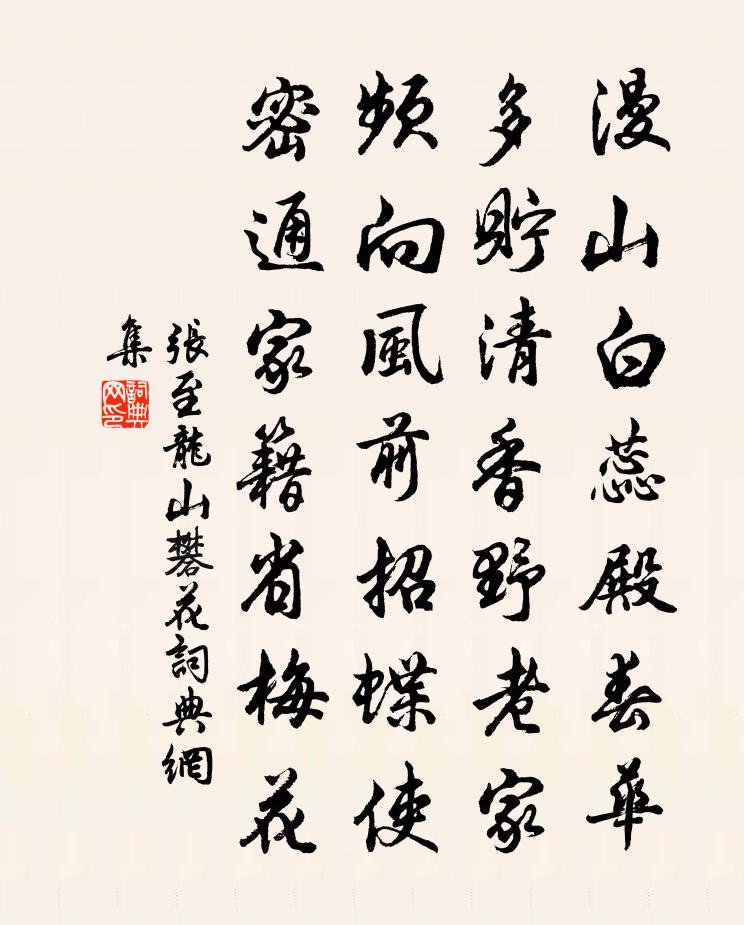 漫山白蕊殿春華
多貯清香野老家
頻向風前招蝶使
密通家籍省梅花
張至龍山礬花詞典網
集
詞典網印